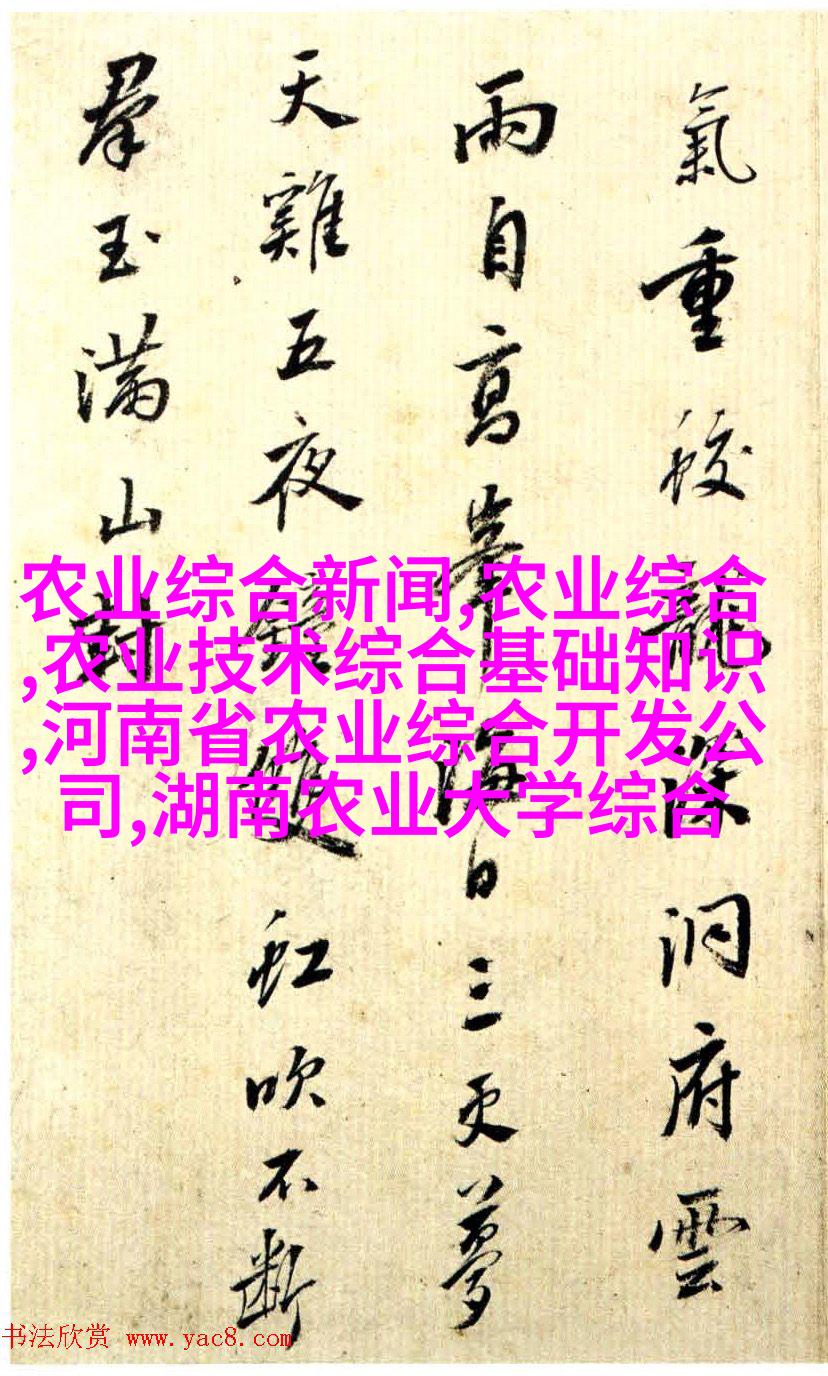 氣重蛟龍深洞府雲
雨自高峯海日三更夢
天雞五夜鐘雙虹吹不斷
羣玉滿山封
农业综合新闻,农业综合
,农业技术综合基础知识
,河南省农业综合开发公
司,湖南农业大学综合
书法欣赏 www.yac8.com